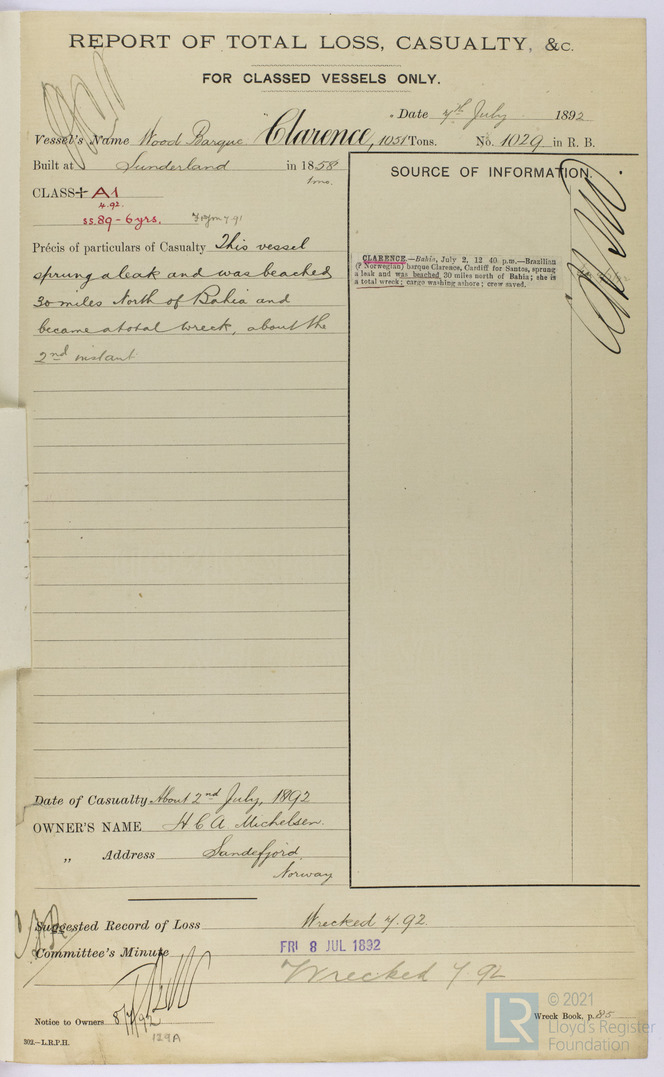 REPORT OF TOTAL LOSS, CASUALTY, &c.
FOR CLASSED VESSELS ONLY.
Date 7th July 1892
Vessel's Name Wood Barque "Clarence, 1051 Tons. No. 1029 in R. B.
Built at Sunderland in 1858
SOURCE OF INFORMATION.
CLASS + A1
4.92.
SS. 89 - 6 yrs.
Précis of particulars of Casualty This vessel
sprung a leak and was beached
30 miles North of Bahia and
became a total wreck, about the
2nd instant
CLARENCE.—Bahia, July 2, 12 40. p.m.—Brazilian
(? Norwegian) barque Clarence, Cardiff for Santos, sprung
a leak and was beached, 30 miles north of Bahia; she is
a total wreck; cargo washing ashore; crew saved.
Date of Casualty About 2nd July, 1892
OWNER'S NAME H C A Michelsen.
„ Address Sandefjord
Norway
Suggested Record of Loss Wrecked 7.92.
Committee's Minute FRI 8 JUL 1892
Wrecked 7.92
Notice to Owners 8/7/92
129A
Wreck Book, p. 85
302.—L.R.P.H.
LR © 2021
Lloyd's Register
Foundation